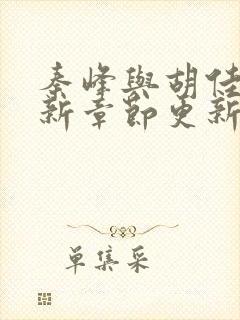 秦峰與胡佳
新章節更新
單集采